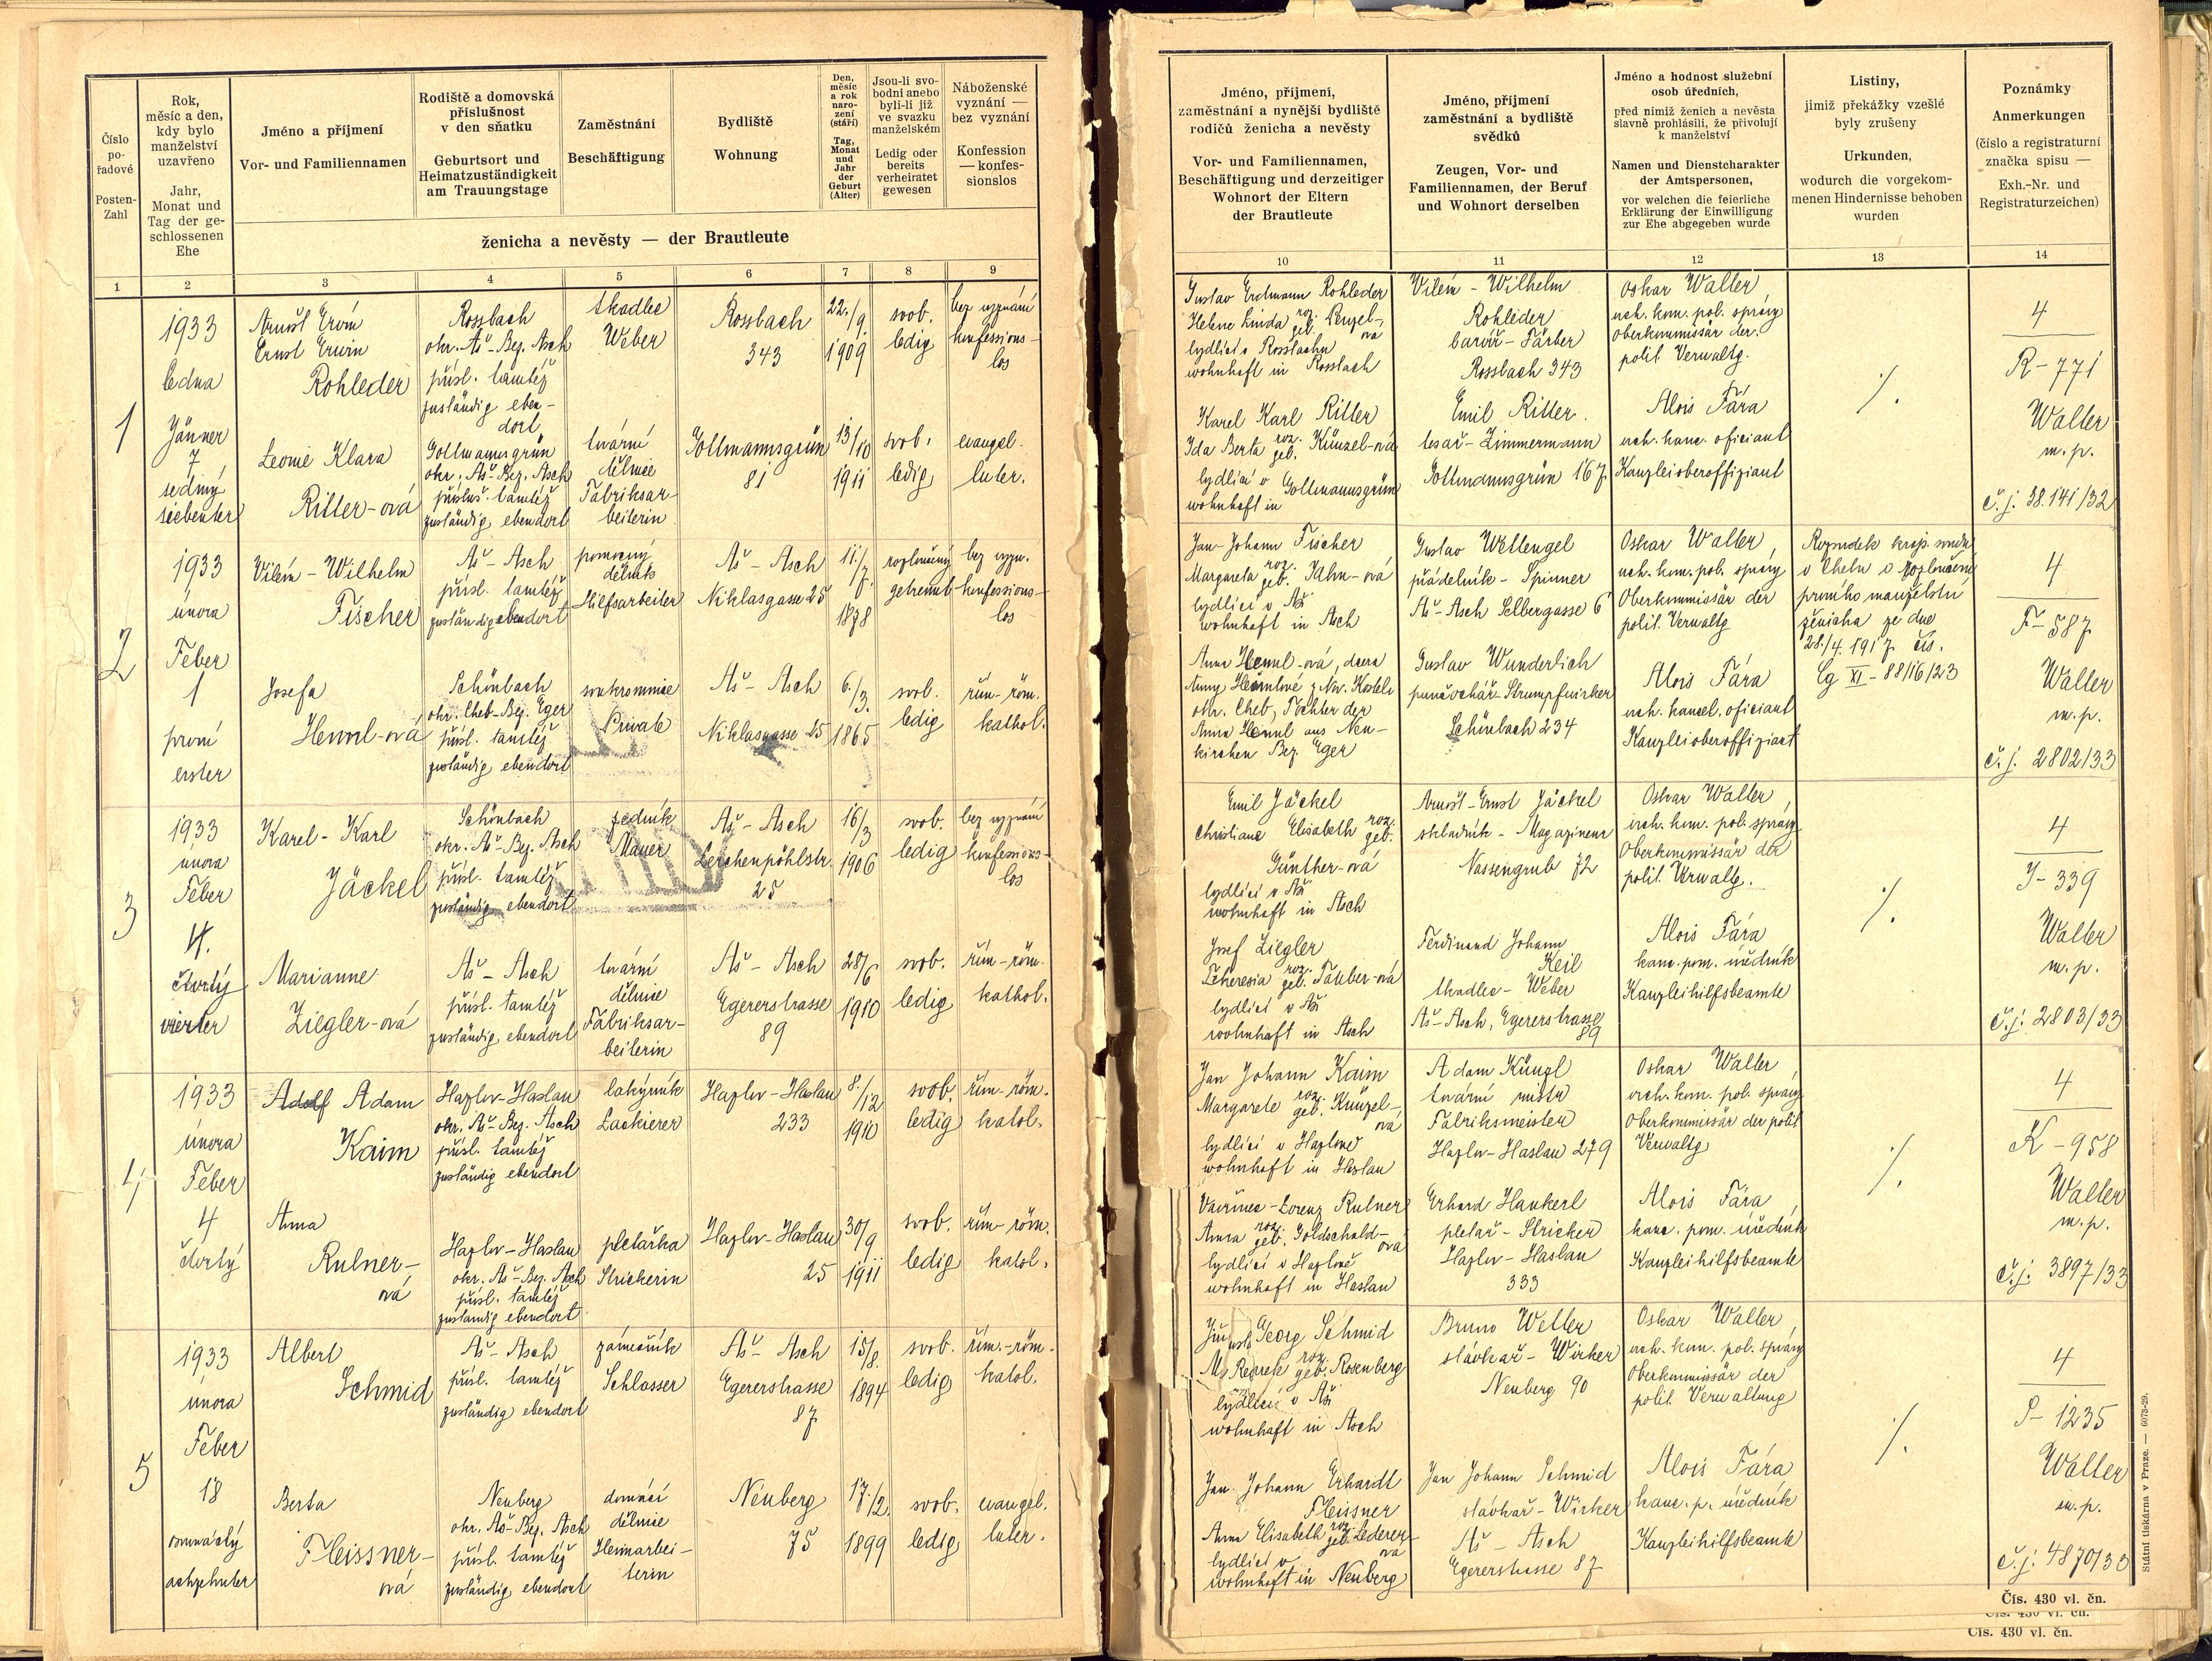 Číslo
po-
řadové
Posten-
Zahl
Rok,
měsíc a den,
kdy bylo
manželství
uzavřeno
Jahr,
Monat und
Tag der ge-
schlossenen
Ehe
Jméno a příjmení
Vor- und Familiennamen
Rodiště a domovská
příslušnost
v den sňatku
Geburtsort und
Heimatzuständigkeit
am Trauungstage
Zaměstnání
Beschäftigung
Bydliště
Wohnung
Den,
měsíc
a rok
naro-
zení
(stáří)
Tag,
Monat
und
Jahr
der
Geburt
(Alter)
Jsou-li svo-
bodni anebo
byli-li již
ve svazku
manželském
Ledig oder
bereits
verheiratet
gewesen
Náboženské
vyznání —
bez vyznání
Konfession
— konfes-
sionslos
ženicha a nevěsty — der Brautleute
1 2 3 4 5 6 7 8 9
Jméno, příjmení,
zaměstnání a nynější bydliště
rodičů ženicha a nevěsty
Vor- und Familiennamen,
Beschäftigung und derzeitiger
Wohnort der Eltern
der Brautleute
Jméno, příjmení
zaměstnání a bydliště
svědků
Zeugen, Vor- und
Familiennamen, der Beruf
und Wohnort derselben
Jméno a hodnost služební
osob úředních,
před nimiž ženich a nevěsta
slavně prohlásili, že přivolují
k manželství
Namen und Dienstcharakter
der Amtspersonen,
vor welchen die feierliche
Erklärung der Einwilligung
zur Ehe abgegeben wurde
Listiny,
jimiž překážky vzešlé
byly zrušeny
Urkunden,
wodurch die vorgekom-
menen Hindernisse behoben
wurden
Poznámky
Anmerkungen
(číslo a registraturní
značka spisu —
Exh.-Nr. und
Registraturzeichen)
10 11 12 13 14
1
1933
ledna
Jänner
7
sedmý
siebenter
Arnošt Ervín
Ernst Erwin
Rohleder
Rossbach
okr. Aš-Bez. Asch
přísl. tamtéž
zuständig eben-
dort
tkadlec
Weber
Rossbach
343
22./9.
1909
svob.
ledig
bez vyznání
konfessions-
los
Leonie Klara
Ritter-ová
Gottmannsgrün
okr. Aš-Bez. Asch
přísluš. tamtéž
zuständig ebendort
tovární
dělnice
Fabriksar-
beiterin
Gottmannsgrün
81
13/10
1911
svob.
ledig
evangel.
luter.
Gustav Erdmann Rohleder
Helene Linda roz. geb. Penzel-
ová
bydlící v Rossbachu
wohnhaft in Rossbach
Karel Karl Ritter
Ida Berta roz. geb. Künzel-ová
bydlící v Gottmannsgrün
wohnhaft in
Vilém - Wilhelm
Rohleder
barvíř - Färber
Rossbach 343
Emil Ritter
tesař - Zimmermann
Gottmannsgrün 167
Oskar Waller,
vrch. kom. pol. správy
Oberkommissär der
polit. Verwaltg.
Alois Fára
vrch. kanc. oficiant
Kanzleioberoffiziant
./.
4
R - 771
Waller
m. p.
č. j. 38.141/32
2
1933
února
Feber
1
první
erster
Vilém - Wilhelm
Fischer
Aš - Asch
přísl. tamtéž
zuständig ebendort
pomocný
dělník
Hilfsarbeiter
Aš - Asch
Niklasgasse 25
11./7.
1878
rozloučený
getrennt
bez vyzn.
konfessions-
los
Josefa
Hemml-ová
Schönbach
okr. Cheb-Bez. Eger
přísl. tamtéž
zuständig ebendort
soukromnice
Private
Aš - Asch
Niklasgasse 25
6./3.
1865
svob.
ledig
řím-röm.
kathol.
Jan-Johann Fischer
Margareta roz. geb. Jahn-ová
bydlící v Aši
wohnhaft in Asch
kirchen Bez. Eger
Gustav Wettengel
přádelník - Spinner
Aš-Asch Selbergasse 6
Gustav Wunderlich
punčochář-Strumpfwirker
Schönbach 234
Oskar Waller,
vrch. kom. pol. správy
Oberkommissär der
polit. Verwaltg
Alois Fára
vrch. kancel. oficiant
Kanzleioberoffiziant
Rozsudek kraj. soudu
v Chebu o rozloučení
prvního manželství
ženicha ze dne
28./4. 1917 čís.
Cg XI - 88/16/23
4
F - 587
Waller
m. p.
č. j. 2802/33
3
1933
února
Feber
4.
čtvrtý
vierter
Karel - Karl
Jäckel
Schönbach
okr. Aš-Bez. Asch
přísl. tamtéž
zuständig ebendort
zedník
Maurer
Aš - Asch
Lerchenpöhlstr.
25
16/3
1906
svob.
ledig
bez vyznání
konfessions-
los
Marianne
Ziegler-ová
Aš - Asch
přísl. tamtéž
zuständig ebendort
tovární
dělnice
Fabriksar-
beiterin
Aš - Asch
Egererstrasse
89
28/6
1910
svob.
ledig
řím-röm.
kathol.
Emil Jäckel
Christiane Elisabeth roz. geb.
Günther-ová
bydlící v Aši
wohnhaft in Asch
Josef Ziegler
Theresia roz. geb. Täuber-ová
bydlící v Aši
wohnhaft in Asch
Arnošt-Ernst Jäckel
skladník - Magazineur
Nassengrub 72
Ferdinand Johann
Keil
tkadlec - Weber
Aš-Asch, Egererstrasse
89
Oskar Waller,
vrch. kom. pol. správy
Oberkommissär der
polit. Verwaltg.
Alois Fára
kanc. pom. úředník
Kanzleihilfsbeamte
./.
4
J - 339
Waller
m. p.
č. j. 2803/33
4
1933
února
Feber
4
čtvrtý
Adolf Adam
Kaim
Hazlov-Haslau
okr. Aš-Bez. Asch
přísl. tamtéž
zuständig ebendort
lakýrník
Lackierer
Hazlov-Haslau
233
8./12
1910
svob.
ledig
řím-röm.
katol.
Anna
Rulner-
ová
Hazlov-Haslau
okr. Aš-Bez. Asch
přísl. tamtéž
zuständig ebendort
pletařka
Strickerin
Hazlov-Haslau
25
30/9
1911
svob.
ledig
řím-röm.
katol.
Jan Johann Kaim
Margarete roz. geb. Künzel-
ová
bydlící v Hazlově
wohnhaft in Haslau
Vavřinec-Lorenz Rulner
Anna roz. geb. Goldschald-
ová
bydlící v Hazlově
wohnhaft in Haslau
Adam Küngl
tovární mistr
Fabriksmeister
Hazlov-Haslau 279
Erhard Hankerl
pletař - Stricker
Hazlov-Haslau
333
Oskar Waller,
vrch. kom. pol. správy
Oberkommissär der polit.
Verwaltg
Alois Fára
kanc. pom. úředník
Kanzleihilfsbeamte
./.
4
K - 958
Waller
m. p.
č. j. 3897/33
5
1933
února
Feber
18
osmnáctý
achzehnter
Albert
Schmid
Aš - Asch
přísl. tamtéž
zuständig ebendort
zámečník
Schlosser
Aš - Asch
Egererstrasse
87
15/8.
1894
svob.
ledig
řím.-röm.
katol.
Berta
Fleissner-
ová
Neuberg
okr. Aš-Bez. Asch
přísl. tamtéž
zuständig ebendort
domácí
dělnice
Heimarbei-
terin
Neuberg
75
17./2.
1899
svob.
ledig
evangel.
luter.
Georg Schmid
roz. geb. Rosenberg
bydlící v Aši
wohnhaft in Asch
Jan Johann Erhardt
Fleissner
Anna Elisabeth roz. geb. Lederer-
ová
bydlící v
wohnhaft in Neuberg
Bruno Weller
stávkař - Wirker
Neuberg 90
Jan Johann Schmid
stávkař - Wirker
Aš - Asch
Egererstrasse 87
Oskar Waller,
vrch. kom. pol. správy
Oberkommissär der
polit. Verwaltung
Alois Fára
kanc. p. úředník
Kanzleihilfsbeamte
./.
4
S - 1235
Waller
m. p.
č. j. 4870/33
Státní tiskárna v Praze. — 6073-29.
Čís. 430 vl. čn.
Čís. 430 vl. čn.
Čís. 430 vl. čn.